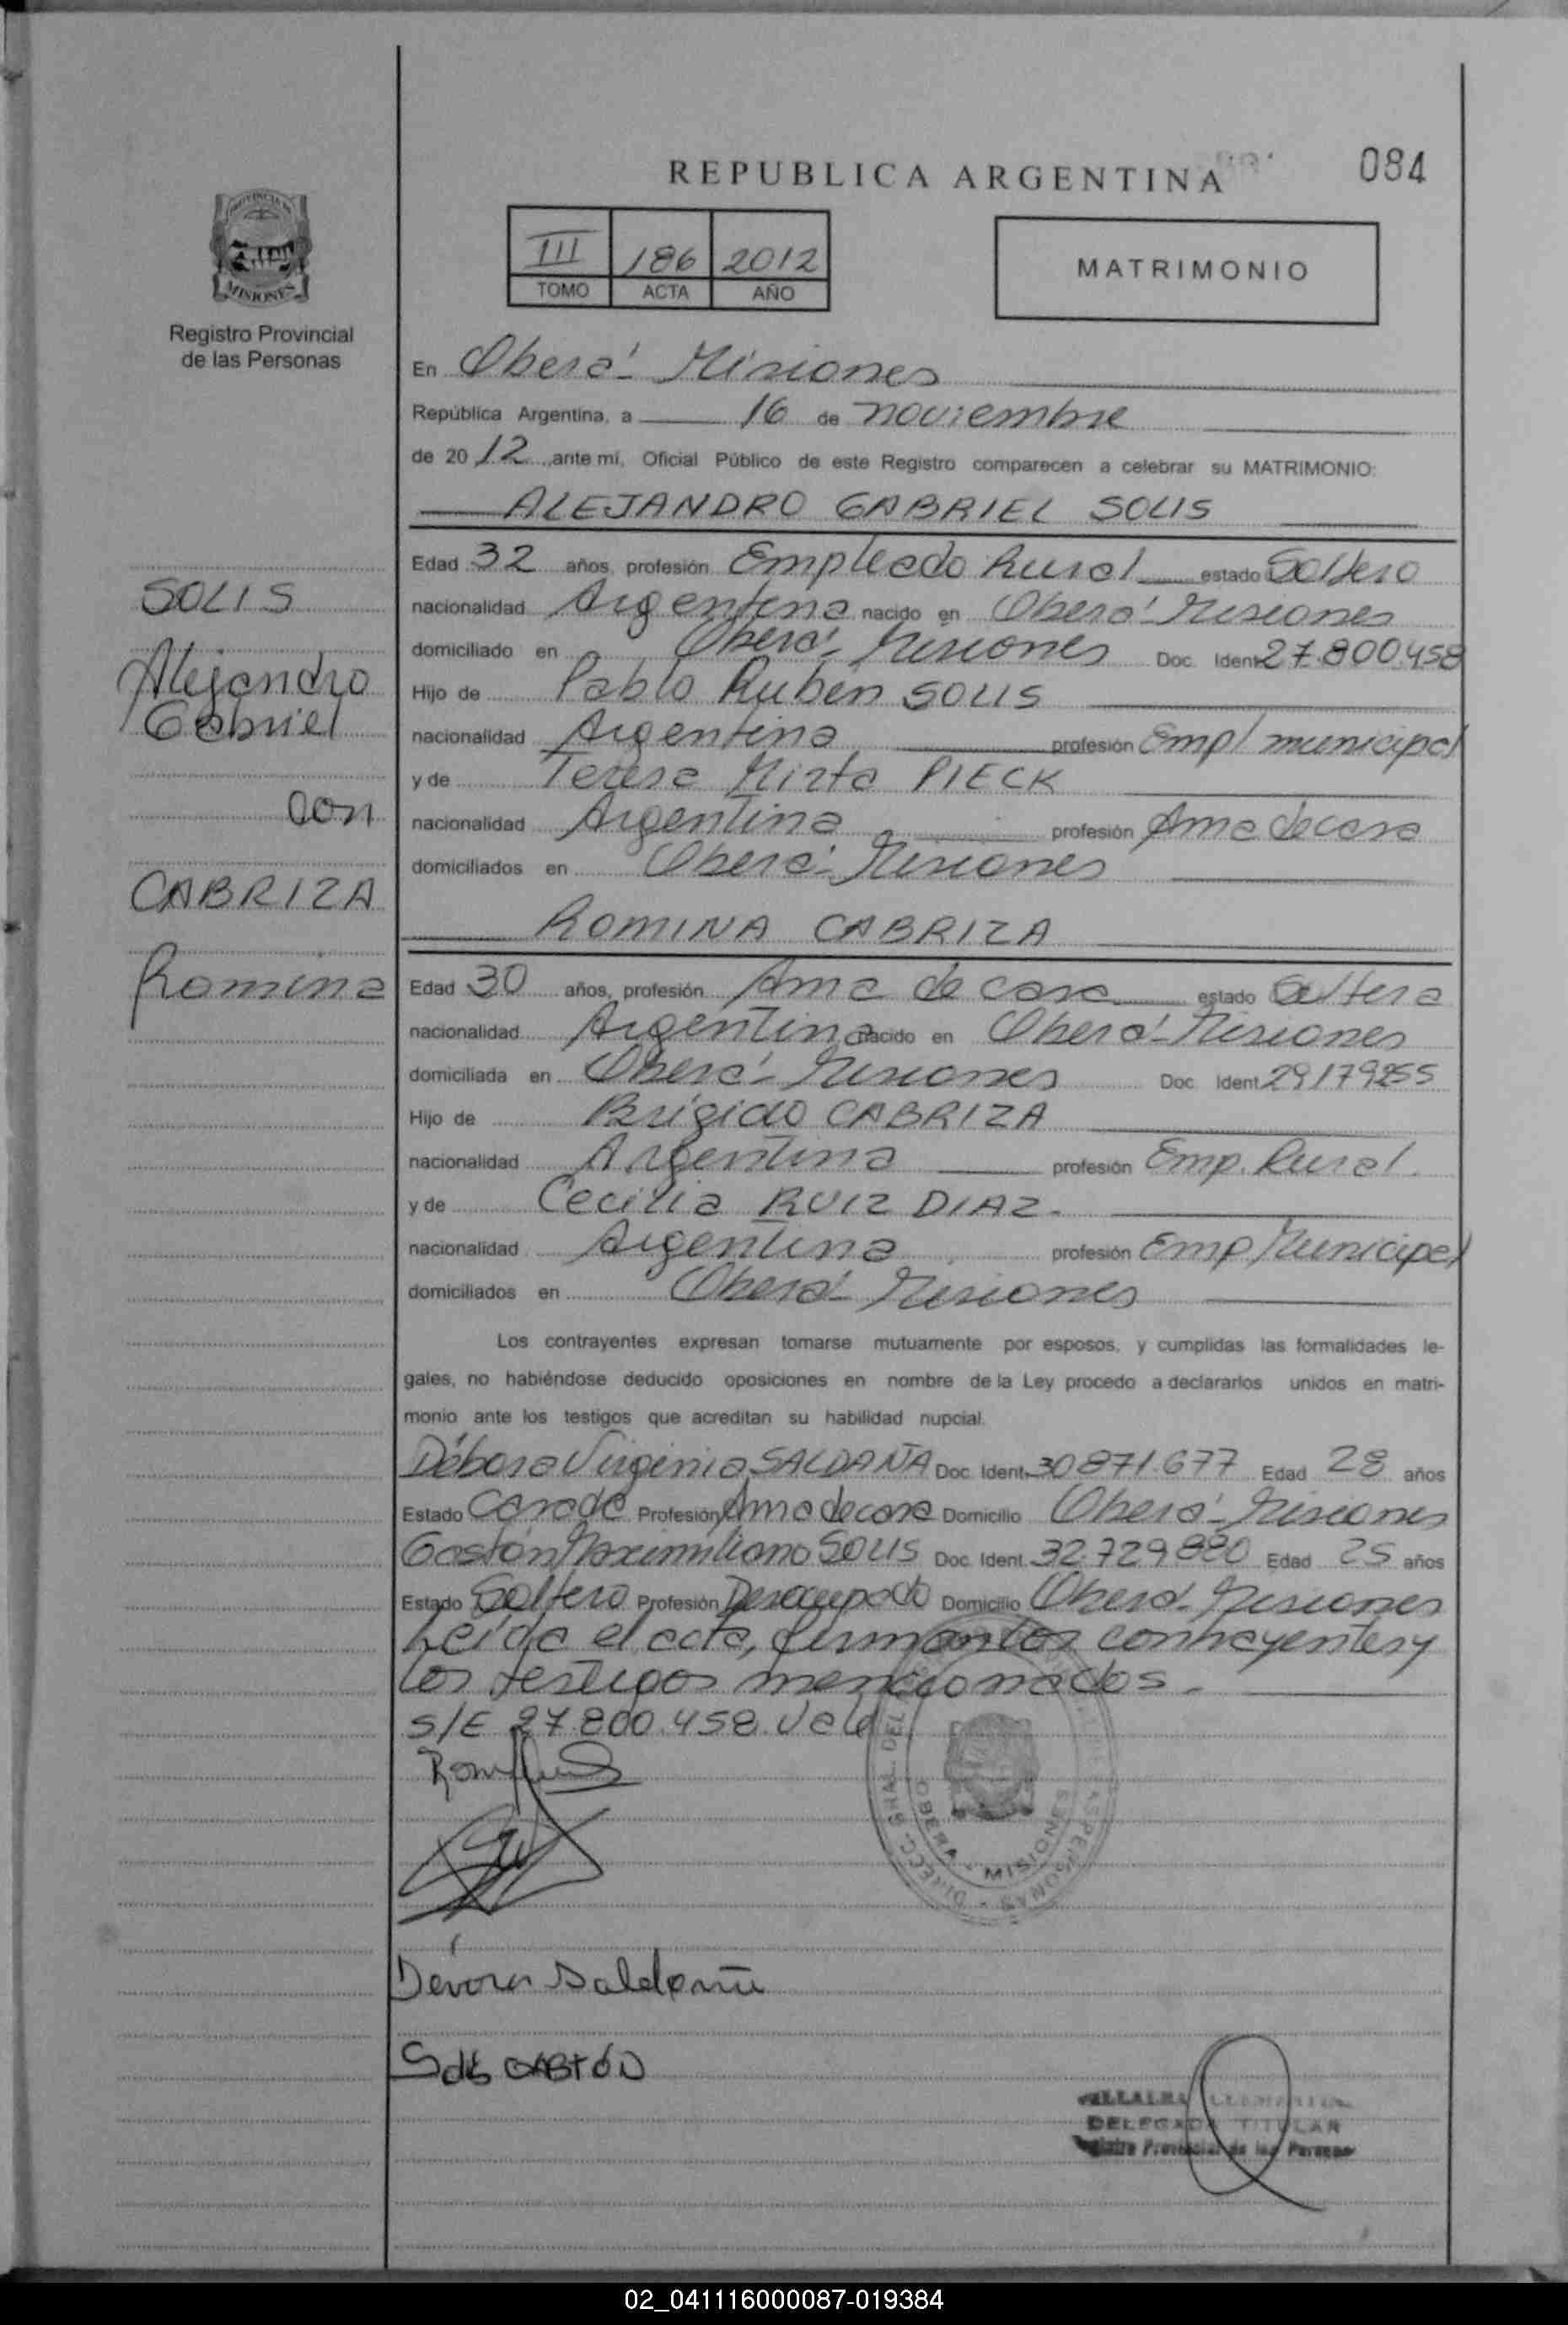 REPUBLICA ARGENTINA
084
III 186 2012
TOMO ACTA AÑO
MATRIMONIO
MISIONES
Registro Provincial
de las Personas
En Oberá - Misiones
República Argentina, a 16 de noviembre
de 2012, ante mí, Oficial Público de este Registro comparecen a celebrar su MATRIMONIO:
ALEJANDRO GABRIEL SOLIS
Edad 32 años, profesión Empleado Rural estado Soltero
nacionalidad Argentina nacido en Oberá - Misiones
domiciliado en Oberá - Misiones Doc. Ident. 27.800.458
Hijo de Pablo Rubén SOLIS
nacionalidad Argentina profesión Empl municipal
y de Teresa Mirta PIECK
nacionalidad Argentina profesión Ama de casa
domiciliados en Oberá - Misiones
ROMINA CABRIZA
Edad 30 años, profesión Ama de casa estado Soltera
nacionalidad Argentina nacido en Oberá - Misiones
domiciliada en Oberá - Misiones Doc. Ident. 29179255
Hijo de Brígido CABRIZA
nacionalidad Argentina profesión Emp. Rural.
y de Cecilia RUIZ DIAZ.
nacionalidad Argentina profesión Emp Municipal
domiciliados en Oberá - Misiones
SOLIS
Alejandro
Gabriel
con
CABRIZA
Romina
Los contrayentes expresan tomarse mutuamente por esposos, y cumplidas las formalidades le-
gales, no habiéndose deducido oposiciones en nombre de la Ley procedo a declararlos unidos en matri-
monio ante los testigos que acreditan su habilidad nupcial.
Débora Virginia SALDAÑA Doc. Ident. 30871.677 Edad 28 años
Estado Casada Profesión Ama de casa Domicilio Oberá - Misiones
Gastón Maximiliano SOLIS Doc. Ident. 32.729.880 Edad 25 años
Estado Soltero Profesión Desocupado Domicilio Oberá - Misiones
Leída el acta, firman los contrayentes y
los testigos mencionados.
S/E 27.800.458. Vale
OBERA - MISIONES
Dévora Saldaña
Solis GASTÓN
DELEGADA TITULAR
Registro Provincial de las Personas
02_041116000087-019384